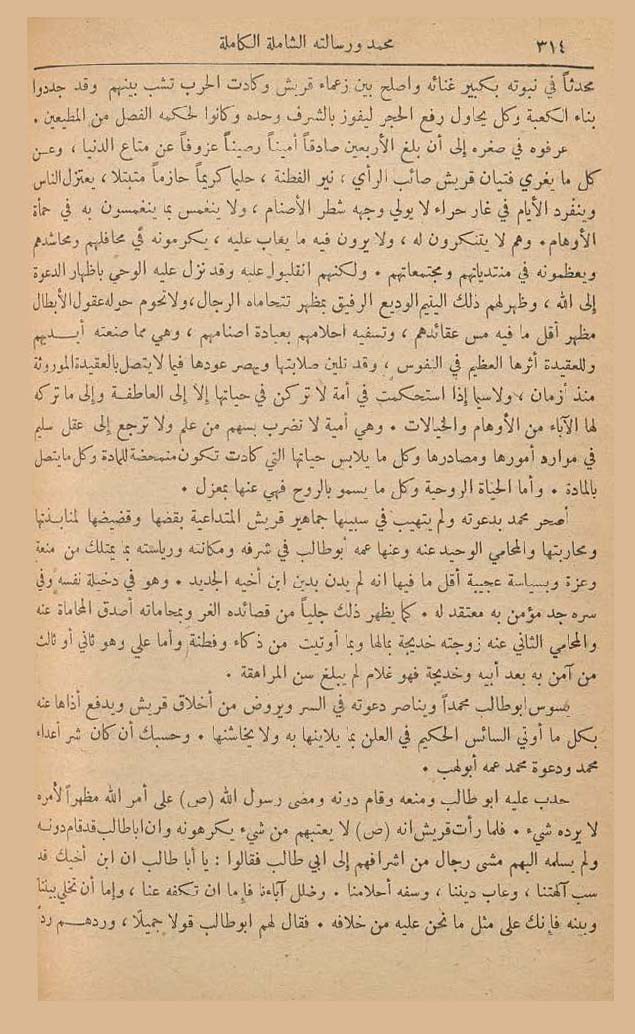 ٣١٤ محمد ورسالته الشاملة الكاملة
محدثاً في نبوته بكبير غنائه واصلح بين زعماء قريش وكادت الحرب تشب بينهم وقد جددوا
بناء الكعبة وكل يحاول رفع الحجر ليفوز بالشرف وحده وكانوا لحكمه الفصل من المطيعين .
عرفوه في صغره إلى أن بلغ الأربعين صادقاً أميناً رصيناً عزوفاً عن متاع الدنيا ، وعن
كل ما يغري فتيان قريش صائب الرأي ، نير الفطنة ، حليماً كريماً حازماً متبتلا ، يعتزل الناس
وينفرد الأيام في غار حراء لا يولي وجهه شطر الأصنام ، ولا ينغمس بما ينغمسون به في حمأة
الأوهام . وهم لا يتنكرون له ، ولا يرون فيه ما يعاب عليه ، يكرمونه في محافلهم ومحاشدهم
ويعظمونه في منتدياتهم ومجتمعاتهم . ولكنهم انقلبوا عليه وقد نزل عليه الوحي باظهار الدعوة
إلى الله ، وظهر لهم ذلك اليتيم الوديع الرفيق بمظهر تتحاماه الرجال ، ولا تحوم حوله عقول الأبطال
مظهر أقل ما فيه مس عقائدهم ، وتسفيه احلامهم بعبادة اصنامهم ، وهي مما صنعته أيديهم
وللعقيدة أثرها العظيم في النفوس ، وقد تلين صلابتها ويهصر عودها فيما لا يتصل بالعقيدة الموروثة
منذ أزمان ، ولاسيما إذا استحكمت في أمة لا تركن في حياتها إلا إلى العاطفة وإلى ما تركه
لها الآباء من الأوهام والخيالات . وهي أمية لا تضرب بسهم من علم ولا ترجع إلى عقل سليم
في موارد أمورها ومصادرها وكل ما يلابس حياتها التي كادت تكون متمحضة للمادة وكل ما يتصل
بالمادة . وأما الحياة الروحية وكل ما يسمو بالروح فهي عنها بمعزل .
أصحر محمد بدعوته ولم يتهيب في سبيلها جماهير قريش المتداعية بقضها وقضيضها لمنابذتها
ومحاربتها والمحامي الوحيد عنه وعنها عمه أبو طالب في شرفه ومكانته ورياسته بما يمتلك من منعة
وعزة وبسياسة عجيبة أقل ما فيها انه لم يدن بدين ابن أخيه الجديد . وهو في دخيلة نفسه وفي
سره جد مؤمن به معتقد له . كما يظهر ذلك جلياً من قصائده الغر وبمحاماته أصدق المحاماة عنه
والمحامي الثاني عنه زوجته خديجة بمالها وبما أوتيت من ذكاء وفطنة وأما علي وهو ثاني أو ثالث
من آمن به بعد أبيه وخديجة فهو غلام لم يبلغ سن المراهقة .
يسوس ابو طالب محمداً ويناصر دعوته في السر ويروض من أخلاق قريش ويدفع أذاها عنه
بكل ما أوتي السائس الحكيم في العلن بما يلاينها به ولا يخاشنها . وحسبك أن كان شر أعداء
محمد ودعوة محمد عمه أبو لهب .
حدب عليه ابو طالب ومنعه وقام دونه ومضى رسول الله (ص) على أمر الله مظهراً لأمره
لا يرده شيء . فلما رأت قريش انه (ص) لا يعتبهم من شيء يكرهونه وان ابا طالب قد قام دونه
ولم يسلمه اليهم مشى رجال من اشرافهم إلى ابي طالب فقالوا : يا أبا طالب ان ابن أخيك قد
سب آلهتنا ، وعاب ديننا ، وسفه أحلامنا . وضلل آباءنا فإما ان تكفه عنا ، وإما أن تخلي بيننا
وبينه فإنك على مثل ما نحن عليه من خلافه . فقال لهم ابو طالب قولا جميلا ، وردهم رداً